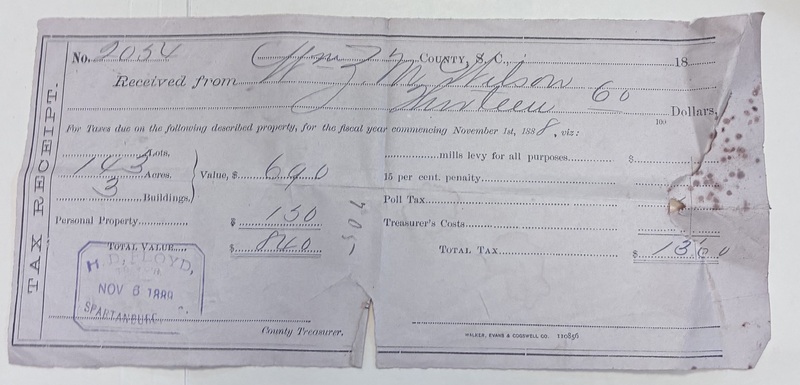 TAX RECEIPT.
No. 2054 COUNTY, S. C., 18
Received from Wm M Wilson
Thirteen 60/100 Dollars,
For Taxes due on the following described property, for the fiscal year commencing November 1st, 1888, viz:
Lots,
143 Acres.
3 Buildings,
Value, $ 690
Personal Property $ 150
TOTAL VALUE $ 840
mills levy for all purposes $
15 per cent. penalty
Poll Tax
Treasurer's Costs
TOTAL TAX $ 13 60
H. D. FLOYD,
NOV 8
SPARTANBURG
County Treasurer.
WALKER, EVANS & COGSWELL CO. 110856